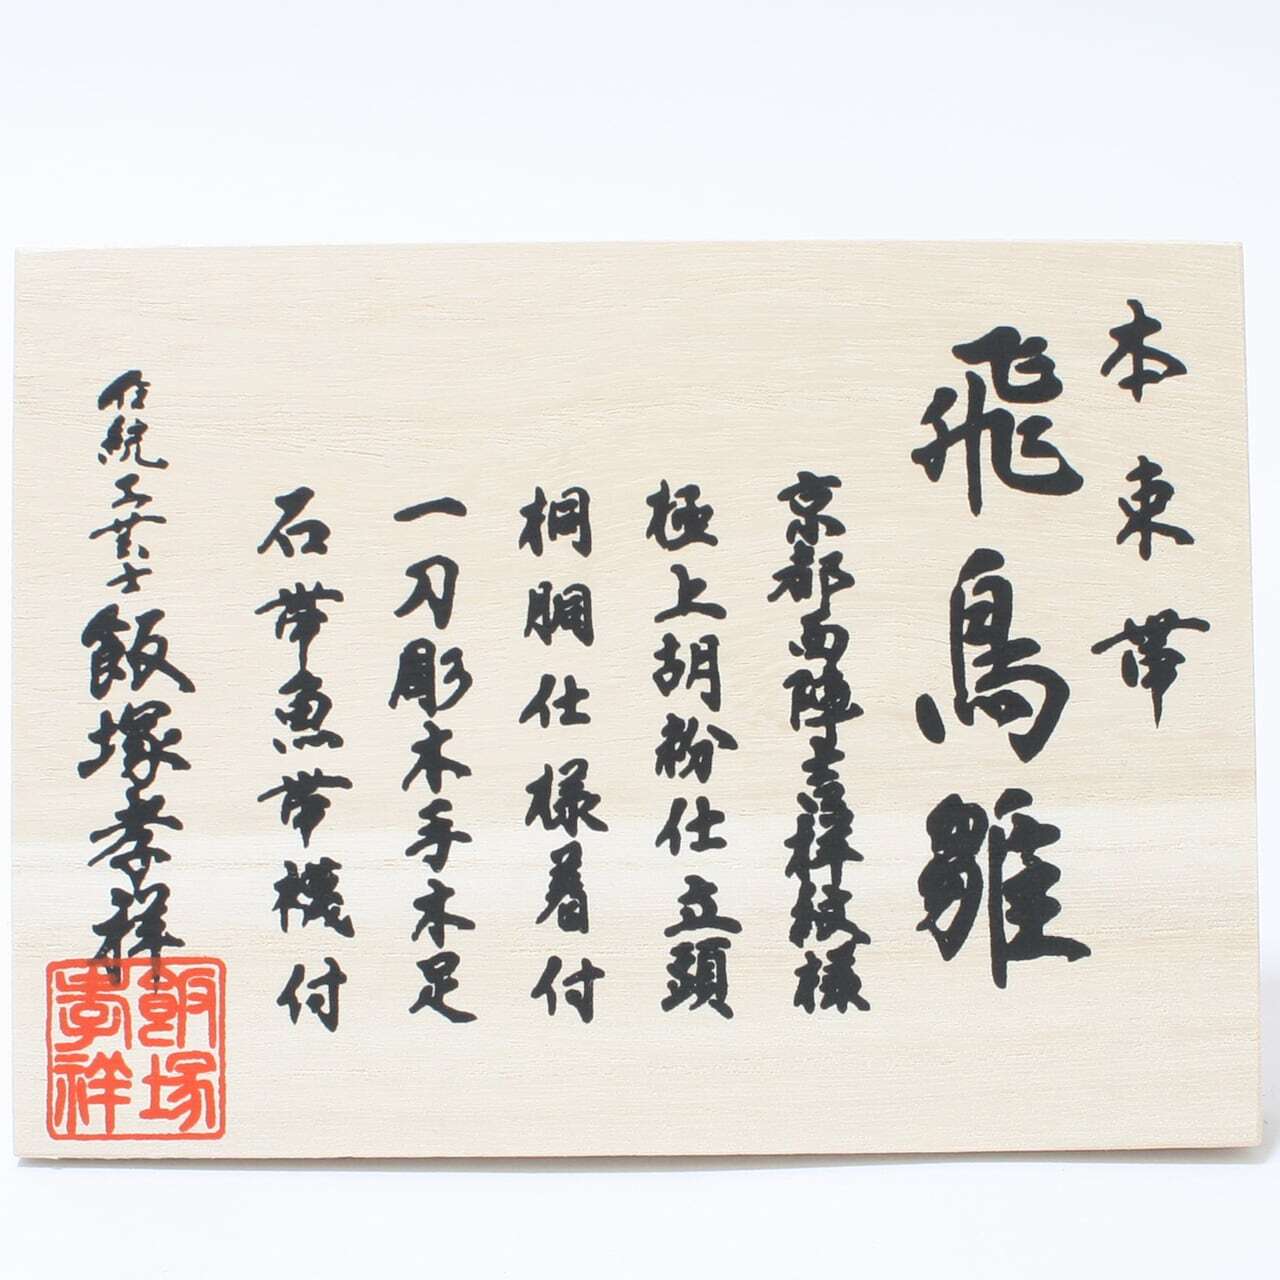 本東帯
飛鳥雛
京都西陣吉祥板様
極上胡粉仕立頭
桐胴仕様着付
一刀彫木手木足
石帯魚帯機付
伝統工芸士飯塚孝祥
飯塚
孝祥